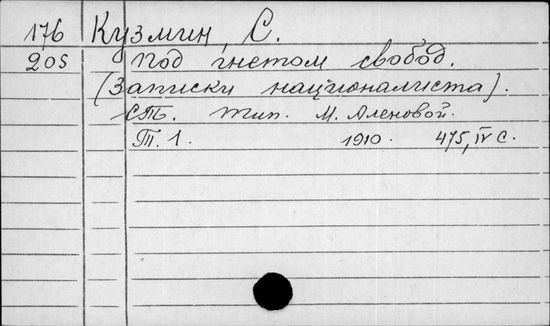 176 Кузмин, С.
205 Под гнетом свобод.
(Записки националиста).
СПб. тип. М. Аленовой.
Т. 1. 1910. 475, IV с.